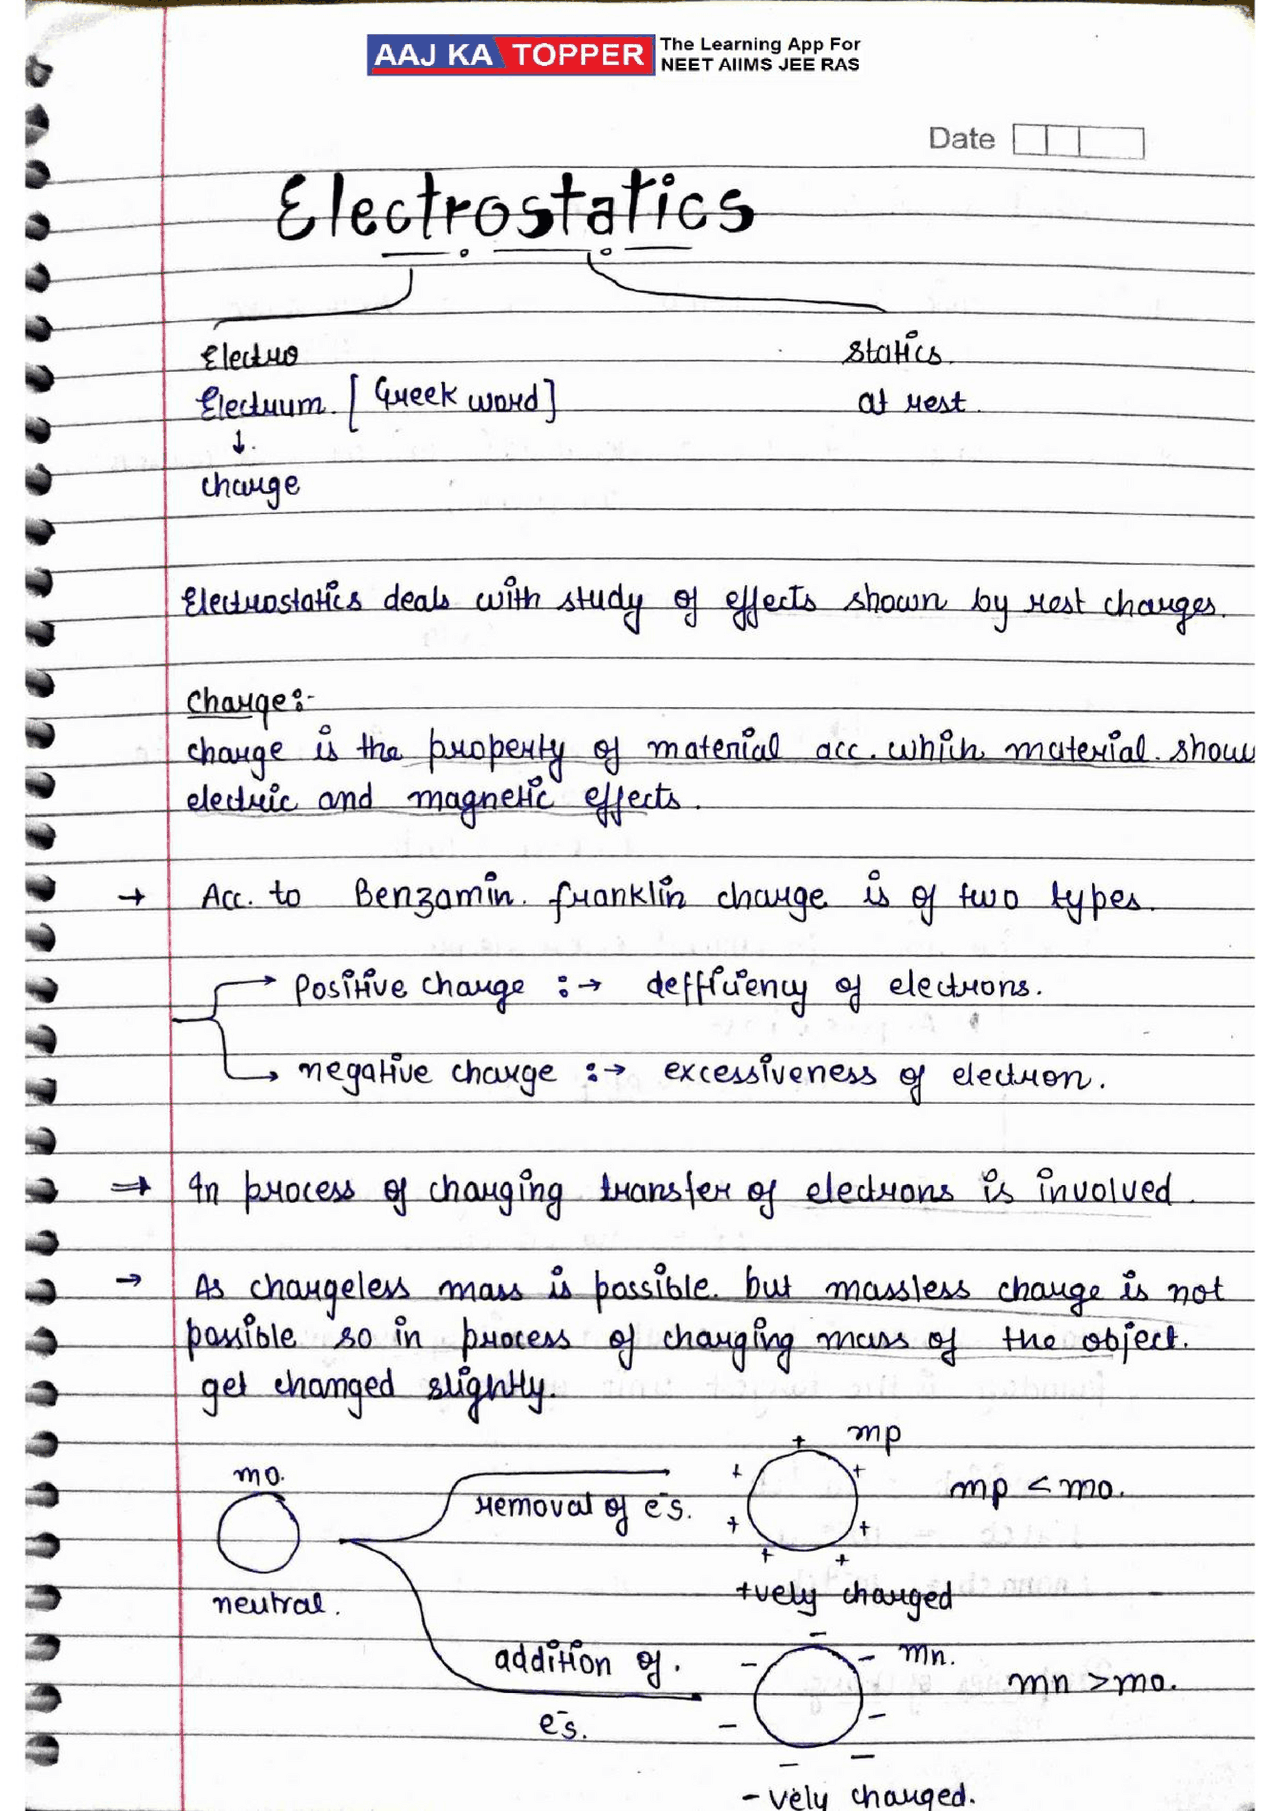 AAJ KA TOPPER The Learning App For
NEET AIIMS JEE RAS
Date
Electrostatics
Electro statics.
Electrum. [Greek word] at rest.
↓
charge
Electrostatics deals with study of effects shown by rest charges.
Charge:-
charge is the property of material acc. which material show
electric and magnetic effects.
→ Acc. to Benzamin. franklin charge is of two types.
→ positive charge :→ deffiuency of electrons.
→ negative charge :→ excessiveness of electron.
⇒ In process of charging transfer of electrons is involved.
→ As chargeless mass is possible but massless charge is not
possible so in process of charging mass of the object.
get changed slightly.
mo.
neutral.
removal of e⁻s.
+ + + + + + +
mp
mp < mo.
+vely charged
addition of.
e⁻s.
- - - - - - -
mn.
mn > mo.
- vely charged.